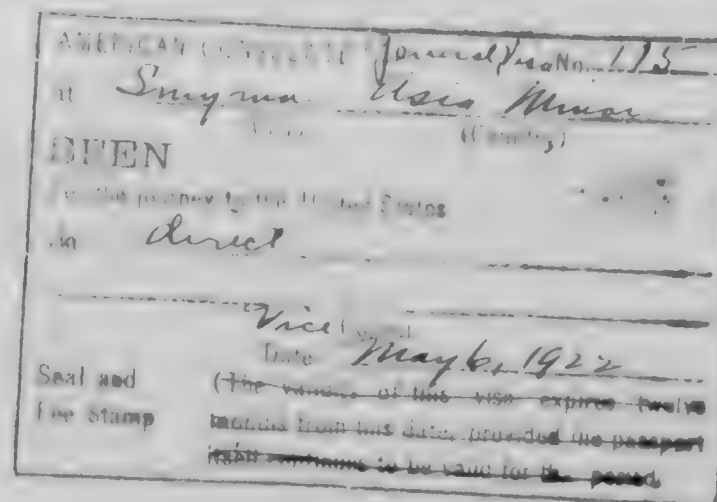 AMERICAN CONSULATE Journal Visa No. 115
at Smyrna Asia Minor
(Country)
SEEN
For the journey to the United States
via direct
Vice Consul
Date May 6, 1922
Seal and
Fee Stamp
(The validity of this visa expires twelve
months from this date, provided the passport
itself continues to be valid for the period.